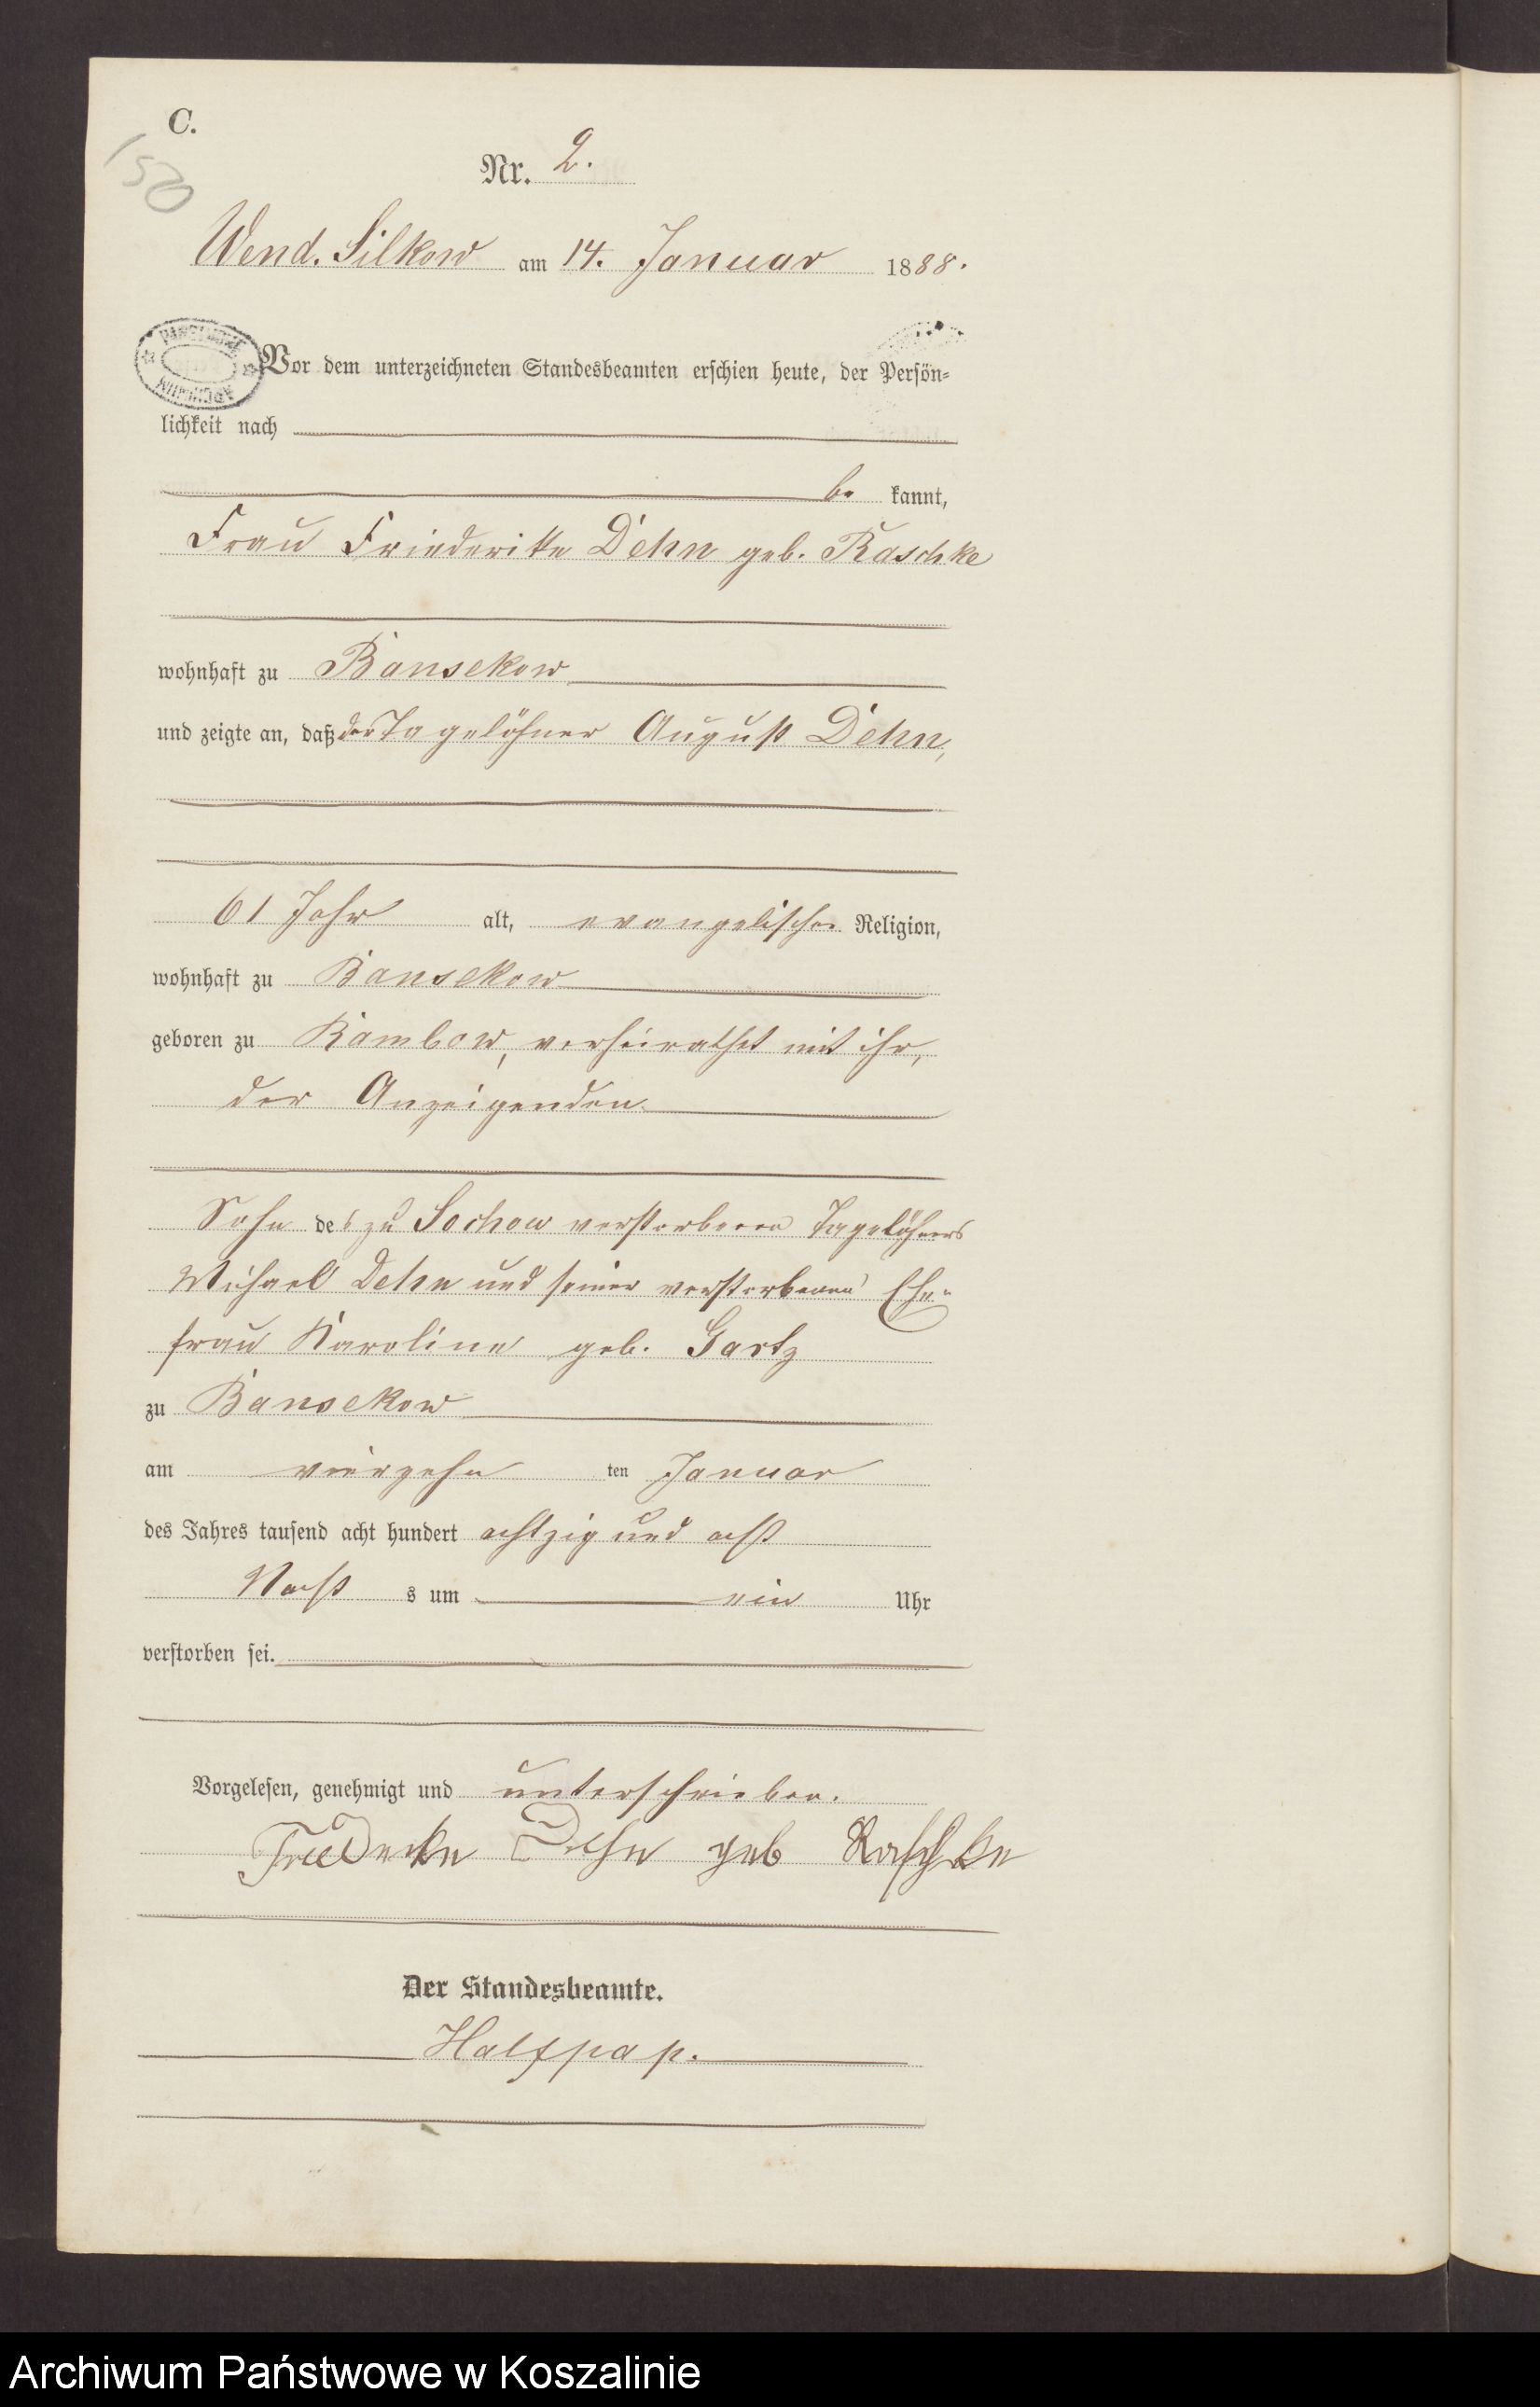 C.
150
Nr. 2.
Wend. Silkow am 14. Januar 1888.
Vor dem unterzeichneten Standesbeamten erschien heute, der Persön-
lichkeit nach
be kannt,
Frau Friederike Dehn geb. Raschke
wohnhaft zu Bansekow
und zeigte an, daß der Tagelöhner August Dehn,
61 Jahr alt, evangelischer Religion,
wohnhaft zu Bansekow
geboren zu Rambow, verheirathet mit ihr,
der Anzeigenden
Sohn des zu Sochow verstorbenen Tagelöhners
Michael Dehn und seiner verstorbenen Ehe-
frau Karoline geb. Gartz
zu Bansekow
am vierzehn ten Januar
des Jahres tausend acht hundert achtzig und acht
Nacht s um ein Uhr
verstorben sei.
Vorgelesen, genehmigt und unterschrieben.
Friederike Dehn geb Raschke
Der Standesbeamte.
Halfpap.
Archiwum Państwowe w Koszalinie